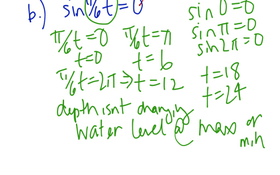 b.) sin(π/6 t) = 0
sin 0 = 0
sin π = 0
sin 2π = 0
π/6 t = 0   π/6 t = π
t = 0   t = 6
π/6 t = 2π ⇒ t = 12
t = 18
t = 24
depth isnt changing
water level @ max or min